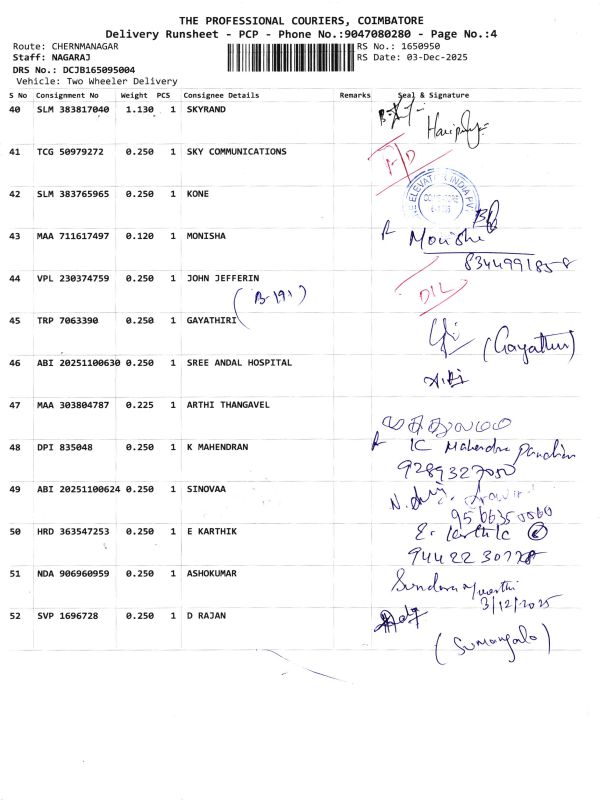 THE PROFESSIONAL COURIERS, COIMBATORE
Delivery Runsheet - PCP - Phone No.:9047080280 - Page No.:4
Route: CHERNMANAGAR RS No.: 1650950
Staff: NAGARAJ RS Date: 03-Dec-2025
DRS No.: DCJB165095004
Vehicle: Two Wheeler Delivery
S No Consignment No Weight PCS Consignee Details Remarks Seal & Signature
40 SLM 383817040 1.130 1 SKYRAND
41 TCG 50979272 0.250 1 SKY COMMUNICATIONS
42 SLM 383765965 0.250 1 KONE
43 MAA 711617497 0.120 1 MONISHA Monisha
8344991858
44 VPL 230374759 0.250 1 JOHN JEFFERIN D/L
(B-191)
45 TRP 7063390 0.250 1 GAYATHIRI (Gayathri)
46 ABI 20251100630 0.250 1 SREE ANDAL HOSPITAL
47 MAA 303804787 0.225 1 ARTHI THANGAVEL
48 DPI 835048 0.250 1 K MAHENDRAN K Mahendra Pandian
9289327050
49 ABI 20251100624 0.250 1 SINOVAA
9566350060
50 HRD 363547253 0.250 1 E KARTHIK E. Karthik
9442230778
51 NDA 906960959 0.250 1 ASHOKUMAR Sundaramoorthi
3/12/2025
52 SVP 1696728 0.250 1 D RAJAN
(Sumangala)